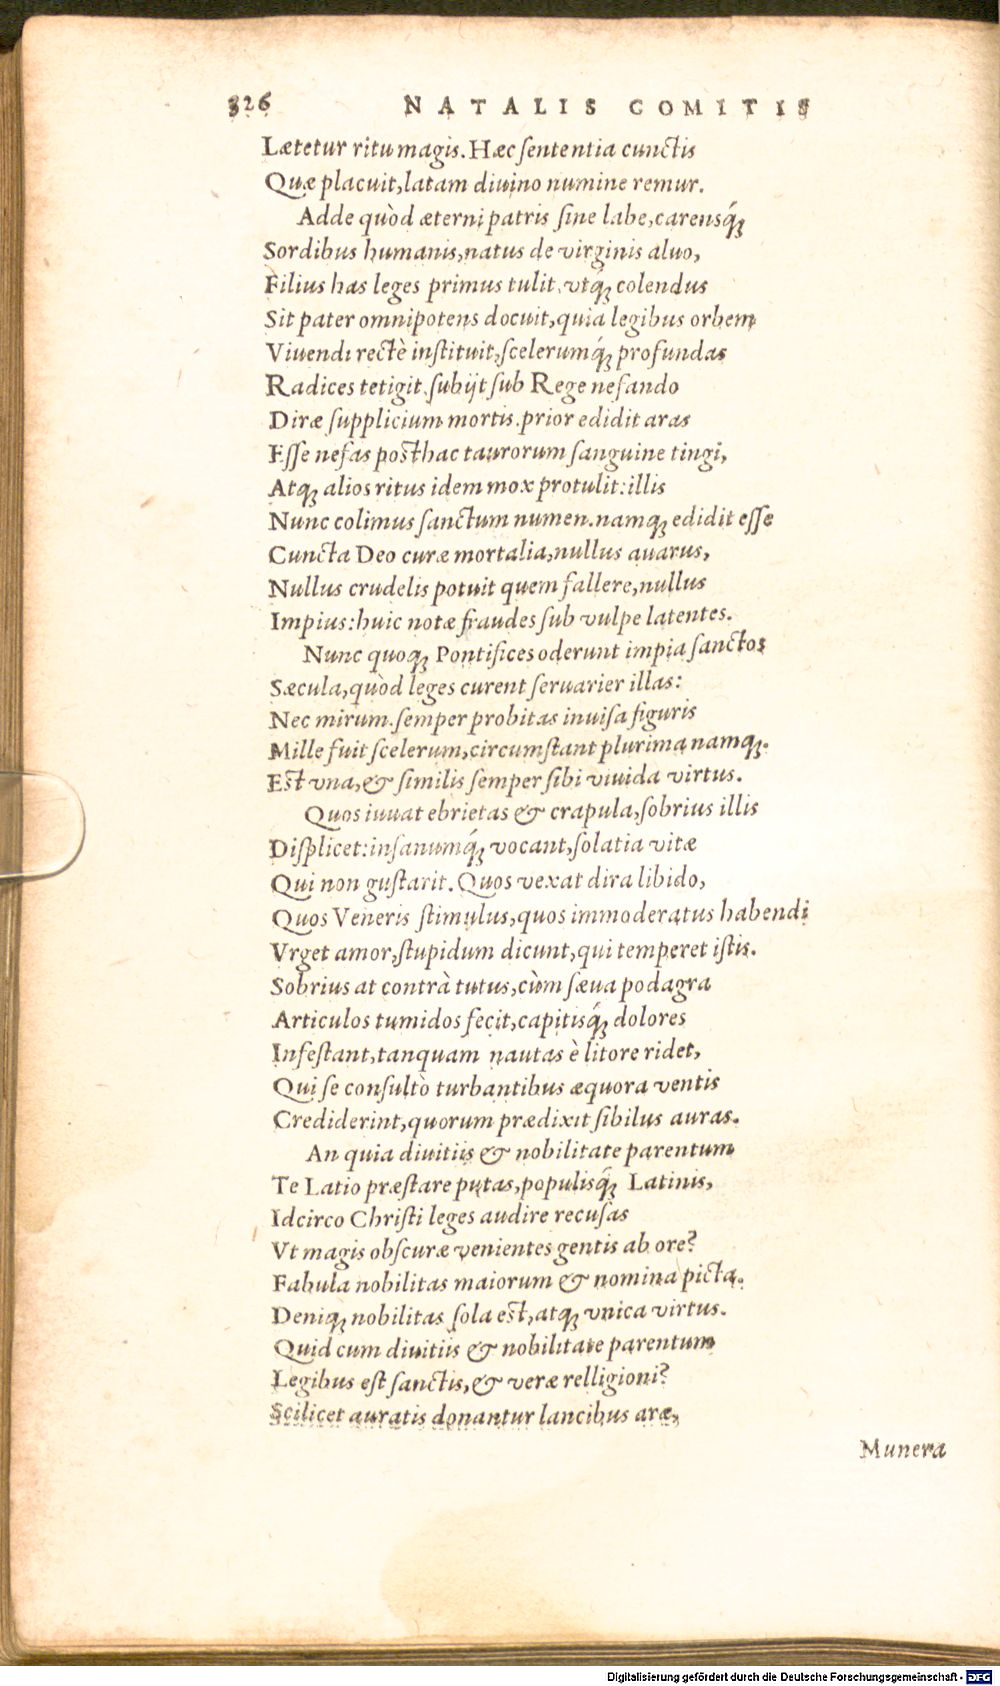 326 NATALIS COMITIS
Lætetur ritu magis. Hæc ſententia cunctis
Quæ placuit, latam diuino numine remur.
Adde quòd æterni patris ſine labe, carensq́;
Sordibus humanis, natus de virginis aluo,
Filius has leges primus tulit, vtq́; colendus
Sit pater omnipotens docuit, quia legibus orbem
Viuendi rectè inſtituit, ſcelerumq́; profundas
Radices tetigit. ſubijt ſub Rege nefando
Diræ ſupplicium mortis. prior edidit aras
Eſſe nefas poſthac taurorum ſanguine tingi,
Atq; alios ritus idem mox protulit: illis
Nunc colimus ſanctum numen. namq; edidit eſſe
Cuncta Deo curæ mortalia, nullus auarus,
Nullus crudelis potuit quem fallere, nullus
Impius: huic notæ fraudes ſub vulpe latentes.
Nunc quoq; Pontifices oderunt impia ſanctos
Sæcula, quòd leges curent ſeruarier illas:
Nec mirum. ſemper probitas inuiſa figuris
Mille fuit ſcelerum, circumſtant plurima namq;.
Eſt vna, & ſimilis ſemper ſibi viuida virtus.
Quos iuuat ebrietas & crapula, ſobrius illis
Diſplicet: inſanumq́; vocant, ſolatia vitæ
Qui non guſtarit. Quos vexat dira libido,
Quos Veneris ſtimulus, quos immoderatus habendi
Vrget amor, ſtupidum dicunt, qui temperet iſtis.
Sobrius at contrà tutus, cùm ſæua podagra
Articulos tumidos fecit, capitisq́; dolores
Infeſtant, tanquam nautas è litore ridet,
Qui ſe conſultò turbantibus æquora ventis
Crediderint, quorum prædixit ſibilus auras.
An quia diuitiis & nobilitate parentum
Te Latio præſtare putas, populisq́; Latinis,
Idcirco Chriſti leges audire recuſas
Vt magis obſcuræ venientes gentis ab ore?
Fabula nobilitas maiorum & nomina picta.
Deniq; nobilitas ſola eſt, atq; vnica virtus.
Quid cum diuitiis & nobilitate parentum
Legibus eſt ſanctis, & veræ relligioni?
Scilicet auratis donantur lancibus aræ,
Munera
Digitalisierung gefördert durch die Deutsche Forschungsgemeinschaft - DFG